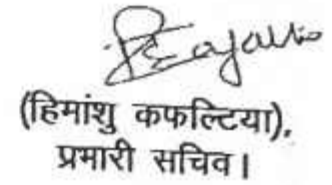 (हिमांशु कफल्टिया),
प्रभारी सचिव।